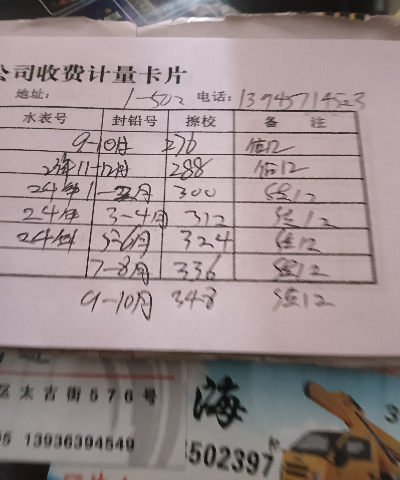 公司收费计量卡片
地址: 1-502 电话: 13945714523
水表号 封铅号 擦校 备 注
9-10月 276 估12
23年11-12月 288 估12
24年1-2月 300 估12
24年 3-4月 312 估12
24年 5-6月 324 估12
7-8月 336 估12
9-10月 348 估12
区太古街576号
海
5 13936394549
502397